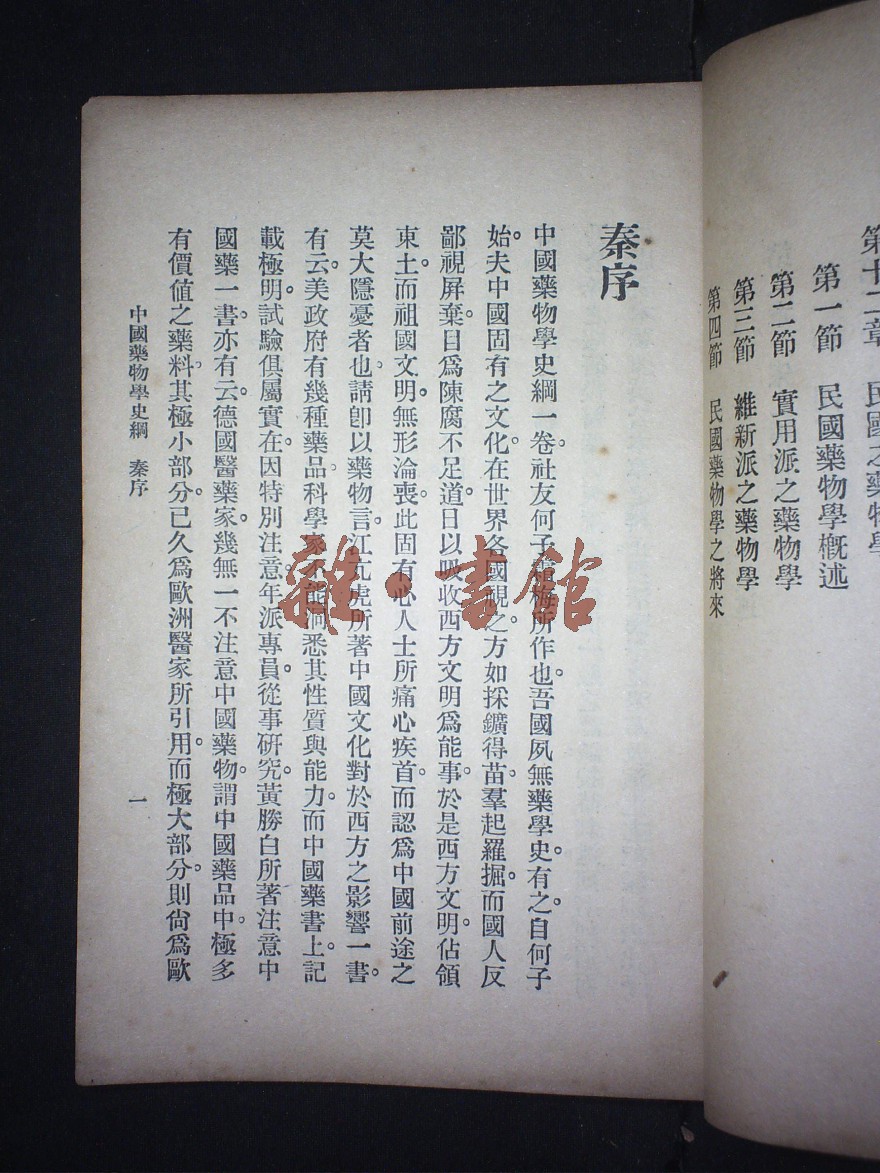 第十二章 民國之藥物學
第一節 民國藥物學概述
第二節 實用派之藥物學
第三節 維新派之藥物學
第四節 民國藥物學之將來
秦序
中國藥物學史綱一卷。社友何子霜梅所作也。吾國夙無藥學史。有之自何子
始。夫中國固有之文化。在世界各國視之。方如採鑛得苗。羣起羅掘。而國人反
鄙視屏棄。曰爲陳腐不足道。日以吸收西方文明爲能事。於是西方文明。佔領
東土。而祖國文明。無形淪喪。此固有心人士所痛心疾首。而認爲中國前途之
莫大隱憂者也。請卽以藥物言。江亢虎所著中國文化對於西方之影響一書。
有云。美政府有幾種藥品。科學家不能洞悉其性質與能力。而中國藥書上。記
載極明。試驗俱屬實在。因特別注意。年派專員。從事硏究。黃勝白所著注意中
國藥一書。亦有云。德國醫藥家。幾無一不注意中國藥物。謂中國藥品中。極多
有價值之藥料。其極小部分。已久爲歐洲醫家所引用。而極大部分。則尙爲歐
中國藥物學史綱 秦序 一
雜·書館